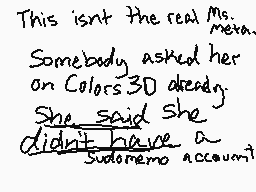 This isnt the real Ms. Meta.
Somebody asked her
on Colors 3D already.
She said she
didn't have a
Sudomemo account